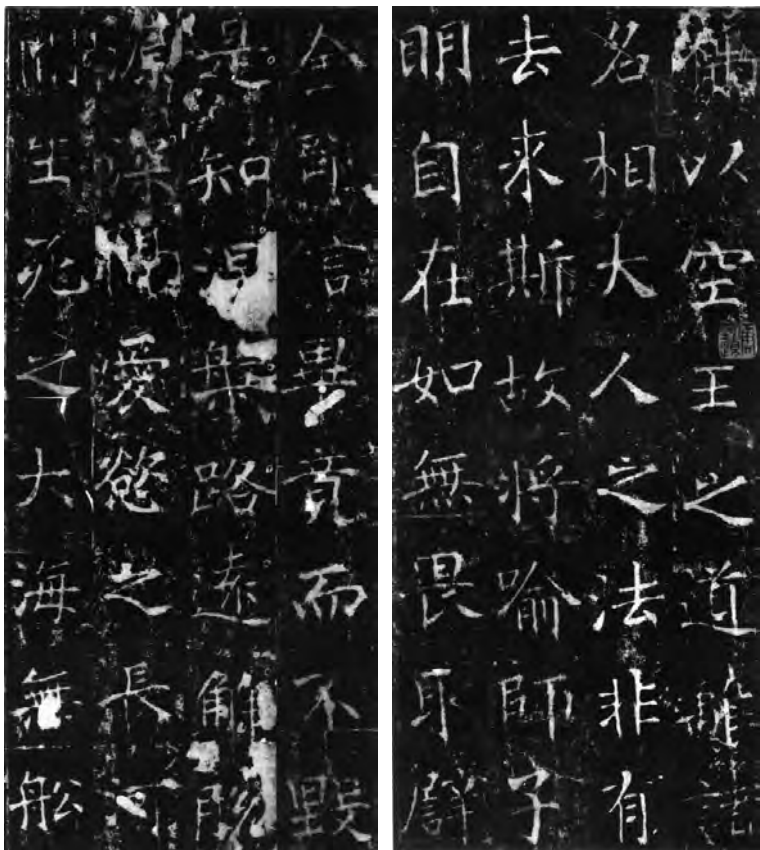 竊以空王之道離諸
名相大人之法非有
去來斯故將喻師子
明自在如無畏取譬
金剛信畢竟而不毀
是知涅槃路遠解脫
源深隔愛慾之長河
間生死之大海無舩